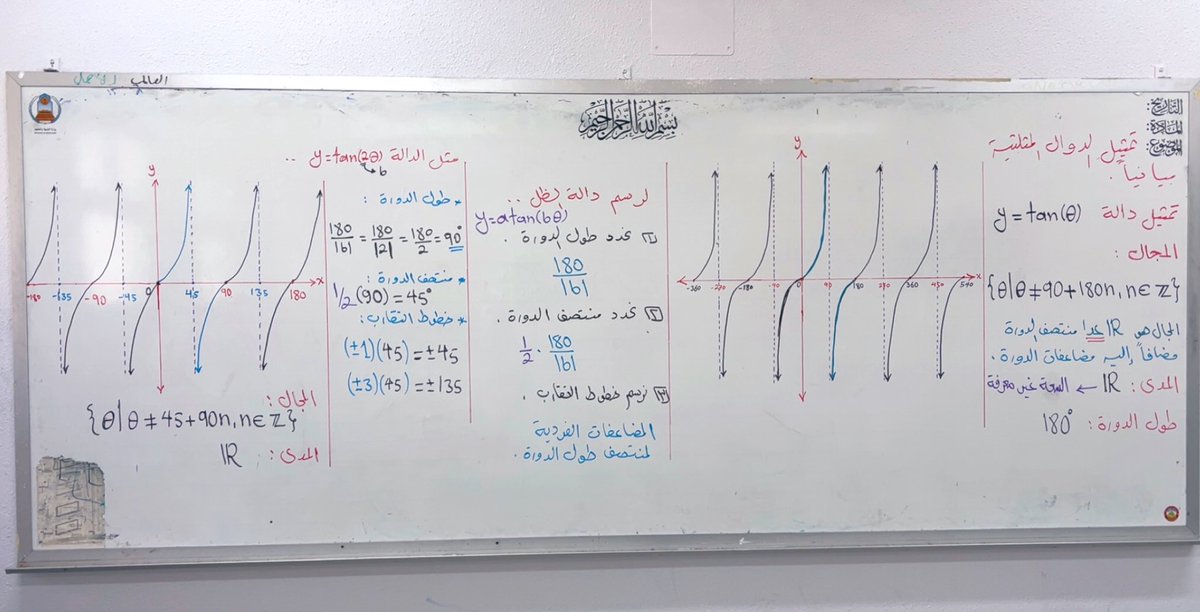 بسم الله الرحمن الرحيم
التاريخ:
المادة:
الموضوع:
تمثيل الدوال المثلثية
بيانياً.
تمثيل دالة y = tan(θ)
المجال:
{θ|θ ≠ 90+180n, n∈ℤ}
المجال هو IR عدا منتصف الدورة
مضافاً إليه مضاعفات الدورة.
المدى: IR ← السعة غير معرفة
طول الدورة: 180°
y
x
-360 -270 -180 -90 0 90 180 270 360 450 540
لرسم دالة الظل ..
y=atan(bθ)
١ نحدد طول الدورة.
180/|b|
٢ نحدد منتصف الدورة.
1/2 · 180/|b|
٣ نرسم خطوط التقارب.
المضاعفات الفردية
لمنتصف طول الدورة.
مثل الدالة y=tan(2θ) ..
b
* طول الدورة:
180/|b| = 180/|2| = 180/2 = 90°
* منتصف الدورة:
1/2(90) = 45°
* خطوط التقارب:
(±1)(45) = ±45
(±3)(45) = ±135
y
x
-180 -135 -90 -45 0 45 90 135 180
المجال:
{θ|θ ≠ 45+90n, n∈ℤ}
المدى: IR